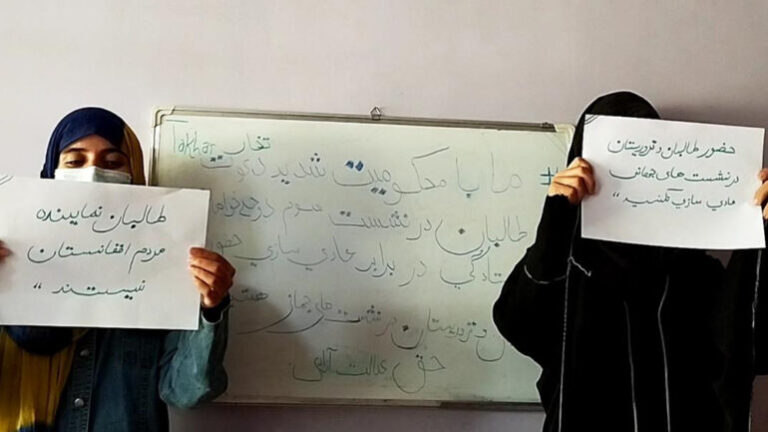 حضور طالبان و تروریستان
در نشست های جهانی
عادی سازی نکنید "
تخار Takhar
# ما با محکومیت شدید دعوت
طالبان در نشست سوم دوحه
ستادگی در برابر عادی سازی حضور
ن و تروریستان در نشست های جهانی
حق عدالت آزادی
طالبان نماینده
مردم افغانستان
نیستند "